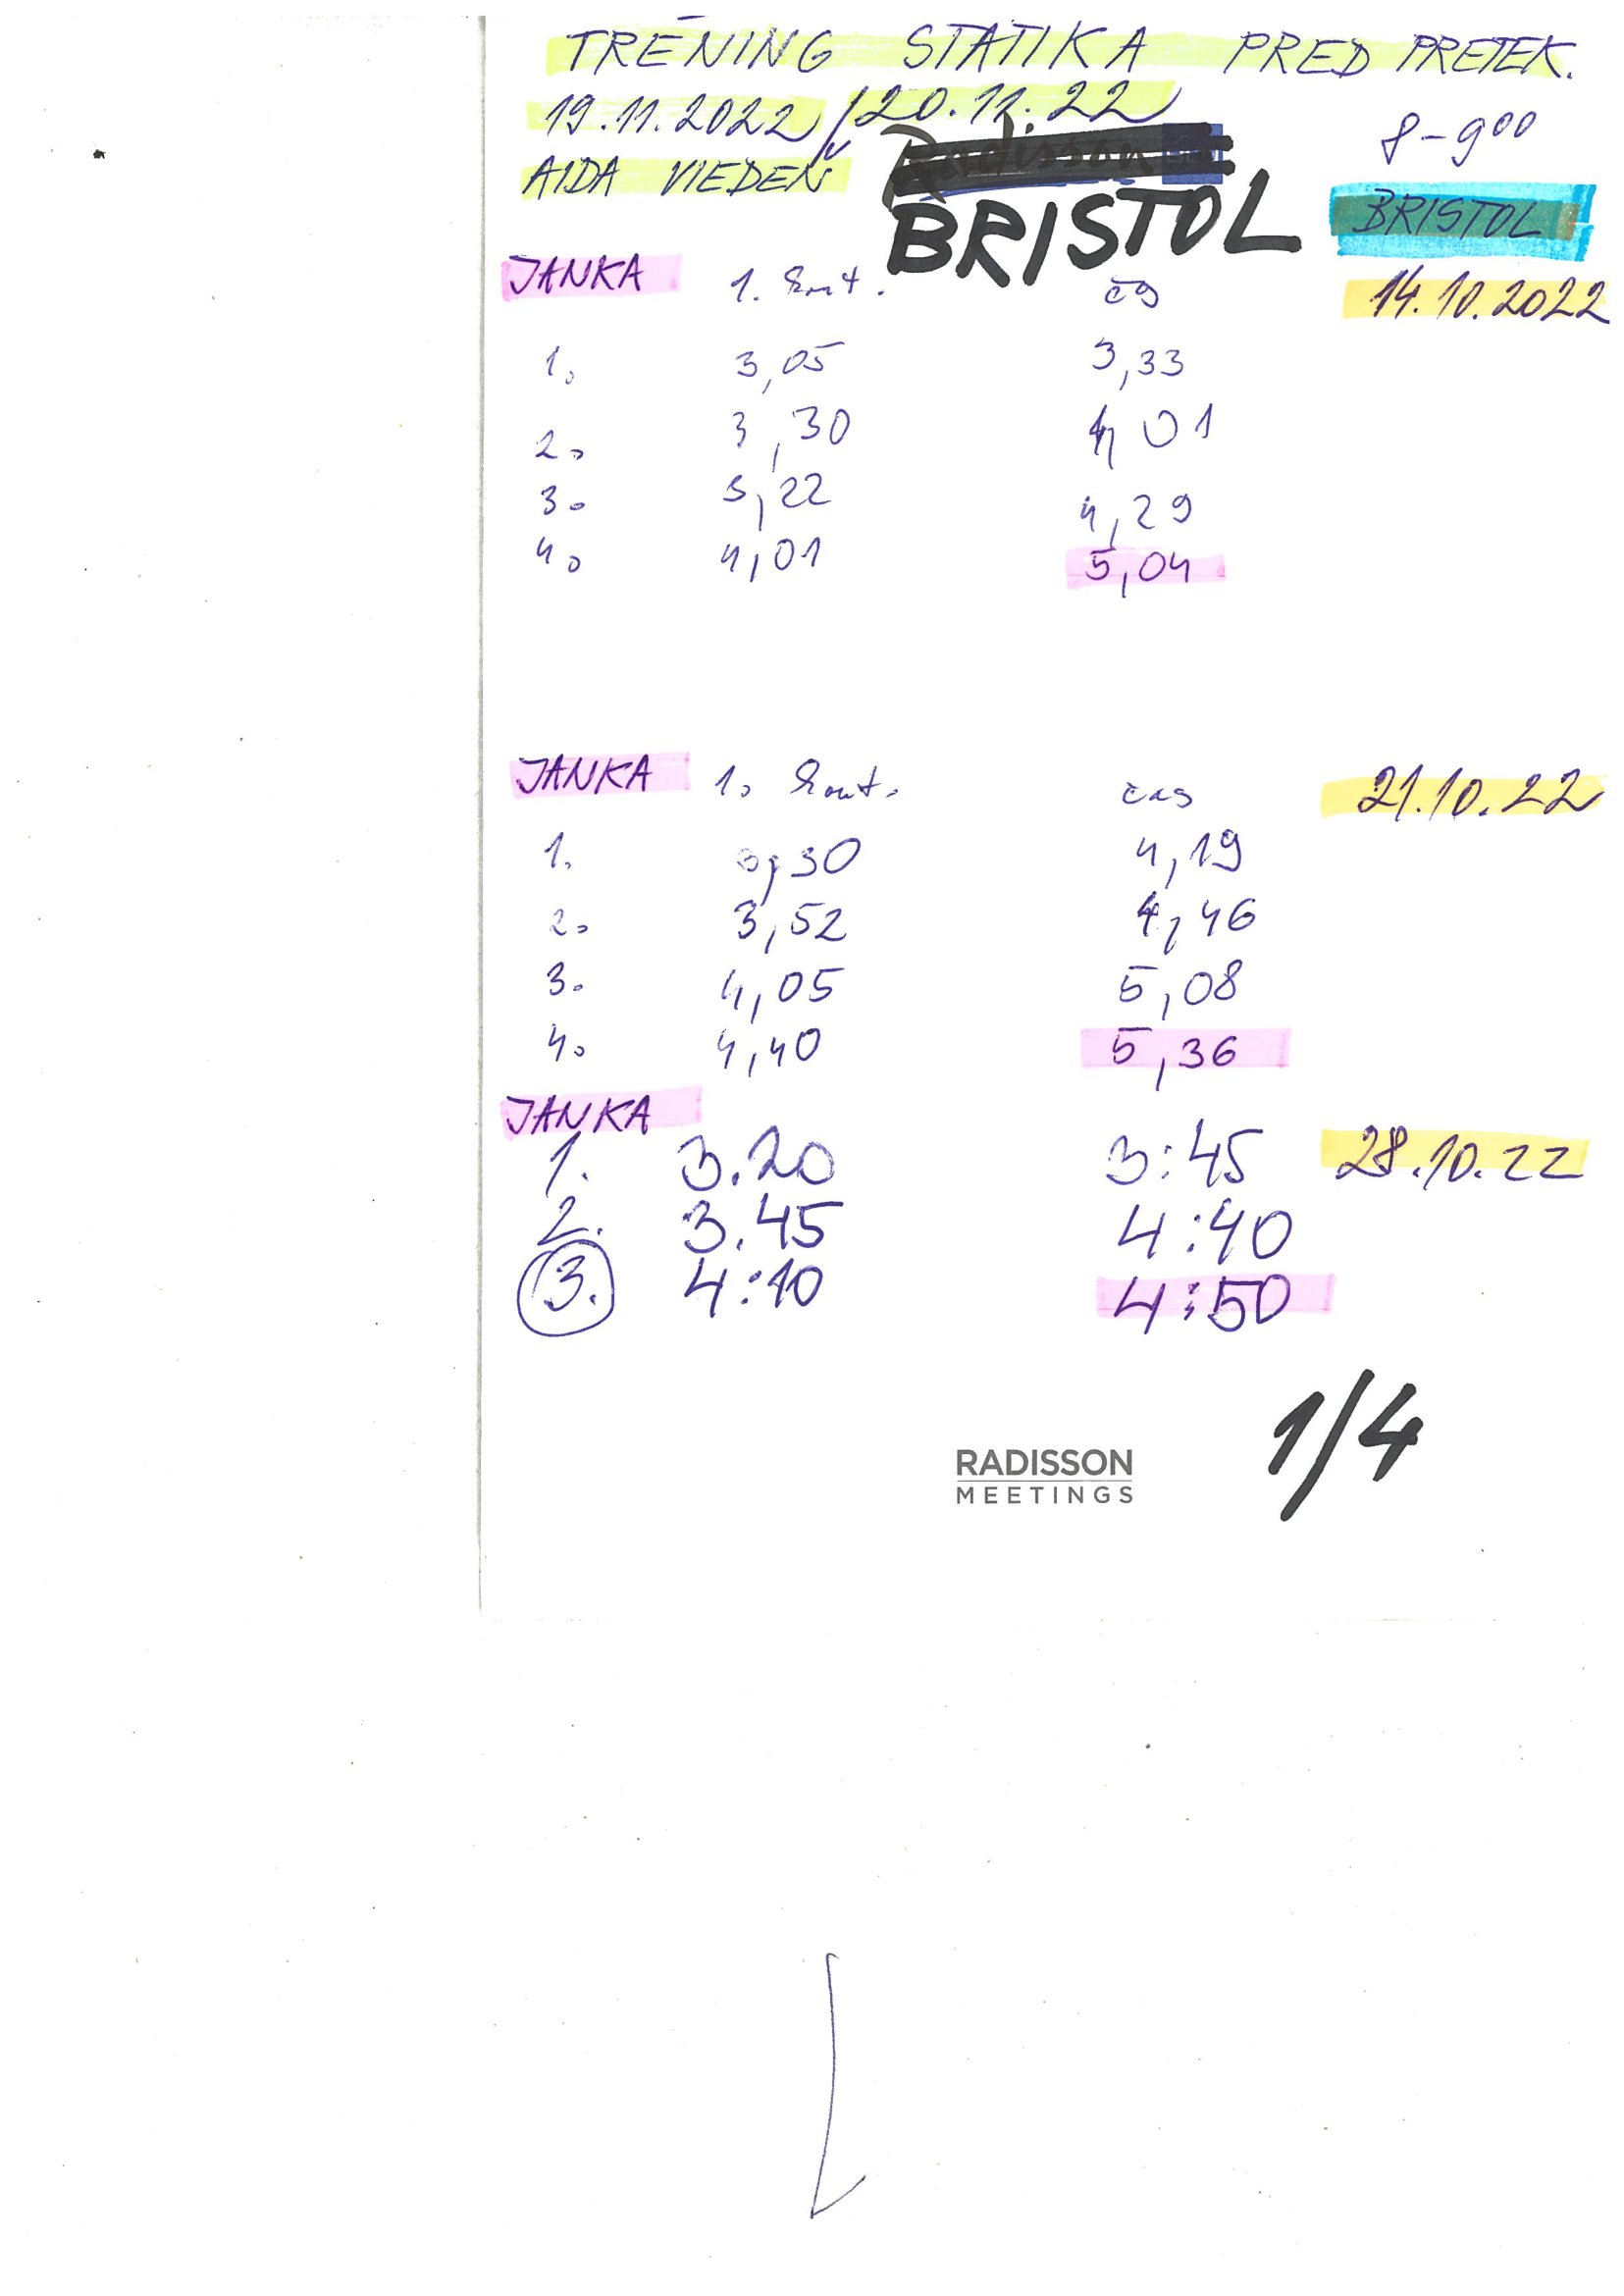 TRÉNING STATIKA PRED PRETEK.
19.11.2022 / 20.11.22 8-9⁰⁰
AIDA VIEDEŇ Radisson BRISTOL
BRISTOL
JANKA 1. kont. čas 14.10.2022
1. 3,05 3,33
2. 3,30 4,01
3. 3,22 4,29
4. 4,01 5,04
JANKA 1. kont. čas 21.10.22
1. 3,30 4,19
2. 3,52 4,46
3. 4,05 5,08
4. 4,40 5,36
JANKA
1. 3.20 3:45 28.10.22
2. 3.45 4:40
3. 4:10 4:50
1/4
RADISSON
MEETINGS